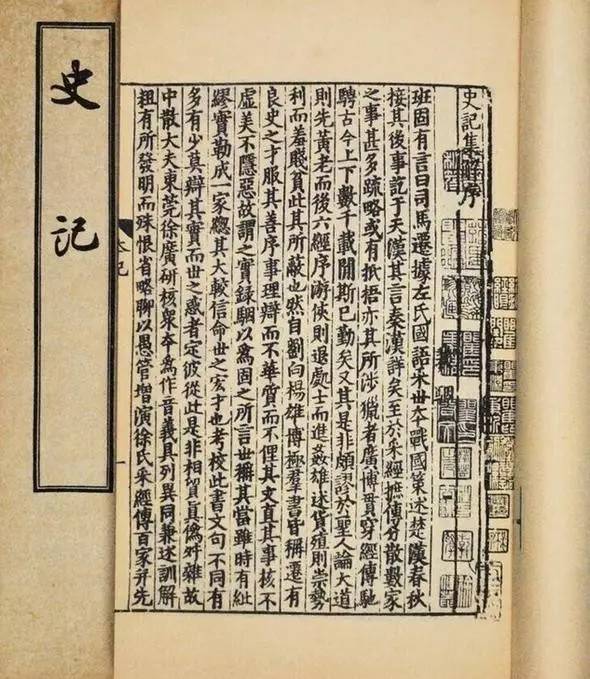 史记
史記集解序
班固有言曰司馬遷據左氏國語采世夲戰國策述楚漢春秋
接其後事訖于天漢其言秦漢詳矣至於采經摭傳分散數家
之事甚多疏略或有抵梧亦其所涉獵者廣博貫穿經傳馳
騁古今上下數千載閒斯已勤矣又其是非頗謬於聖人論大道
則先黃老而後六經序游俠則退處士而進姦雄述貨殖則崇勢
利而羞賤貧此其所蔽也然自劉向楊雄博極羣書皆稱遷有
良史之才服其善序事理辯而不華質而不俚其文直其事核不
虛美不隱惡故謂之實録駰以爲固之所言世稱其當雖時有紕
繆實勒成一家緫其大較信命世之宏才也考校此書文句不同有
多有少莫辯其實而世之惑者定彼從此是非相貿真僞舛雜故
中散大夫東莞徐廣研核衆夲爲作音義具列異同兼述訓解
粗有所發明而殊恨省略聊以愚管增演徐氏采經傳百家并先